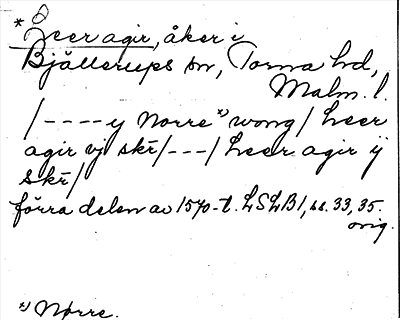 *Leer agir, åker i
Bjällerups sn, Torna hd,
Malm. l.
/---- y Norre *) wong/ Leer
agir vj skr̄/---/ Leer agir ÿ
skr̄/
förra delen av 1570-t. LSLB1, ss. 33, 35.
orig.
*) Nørre.